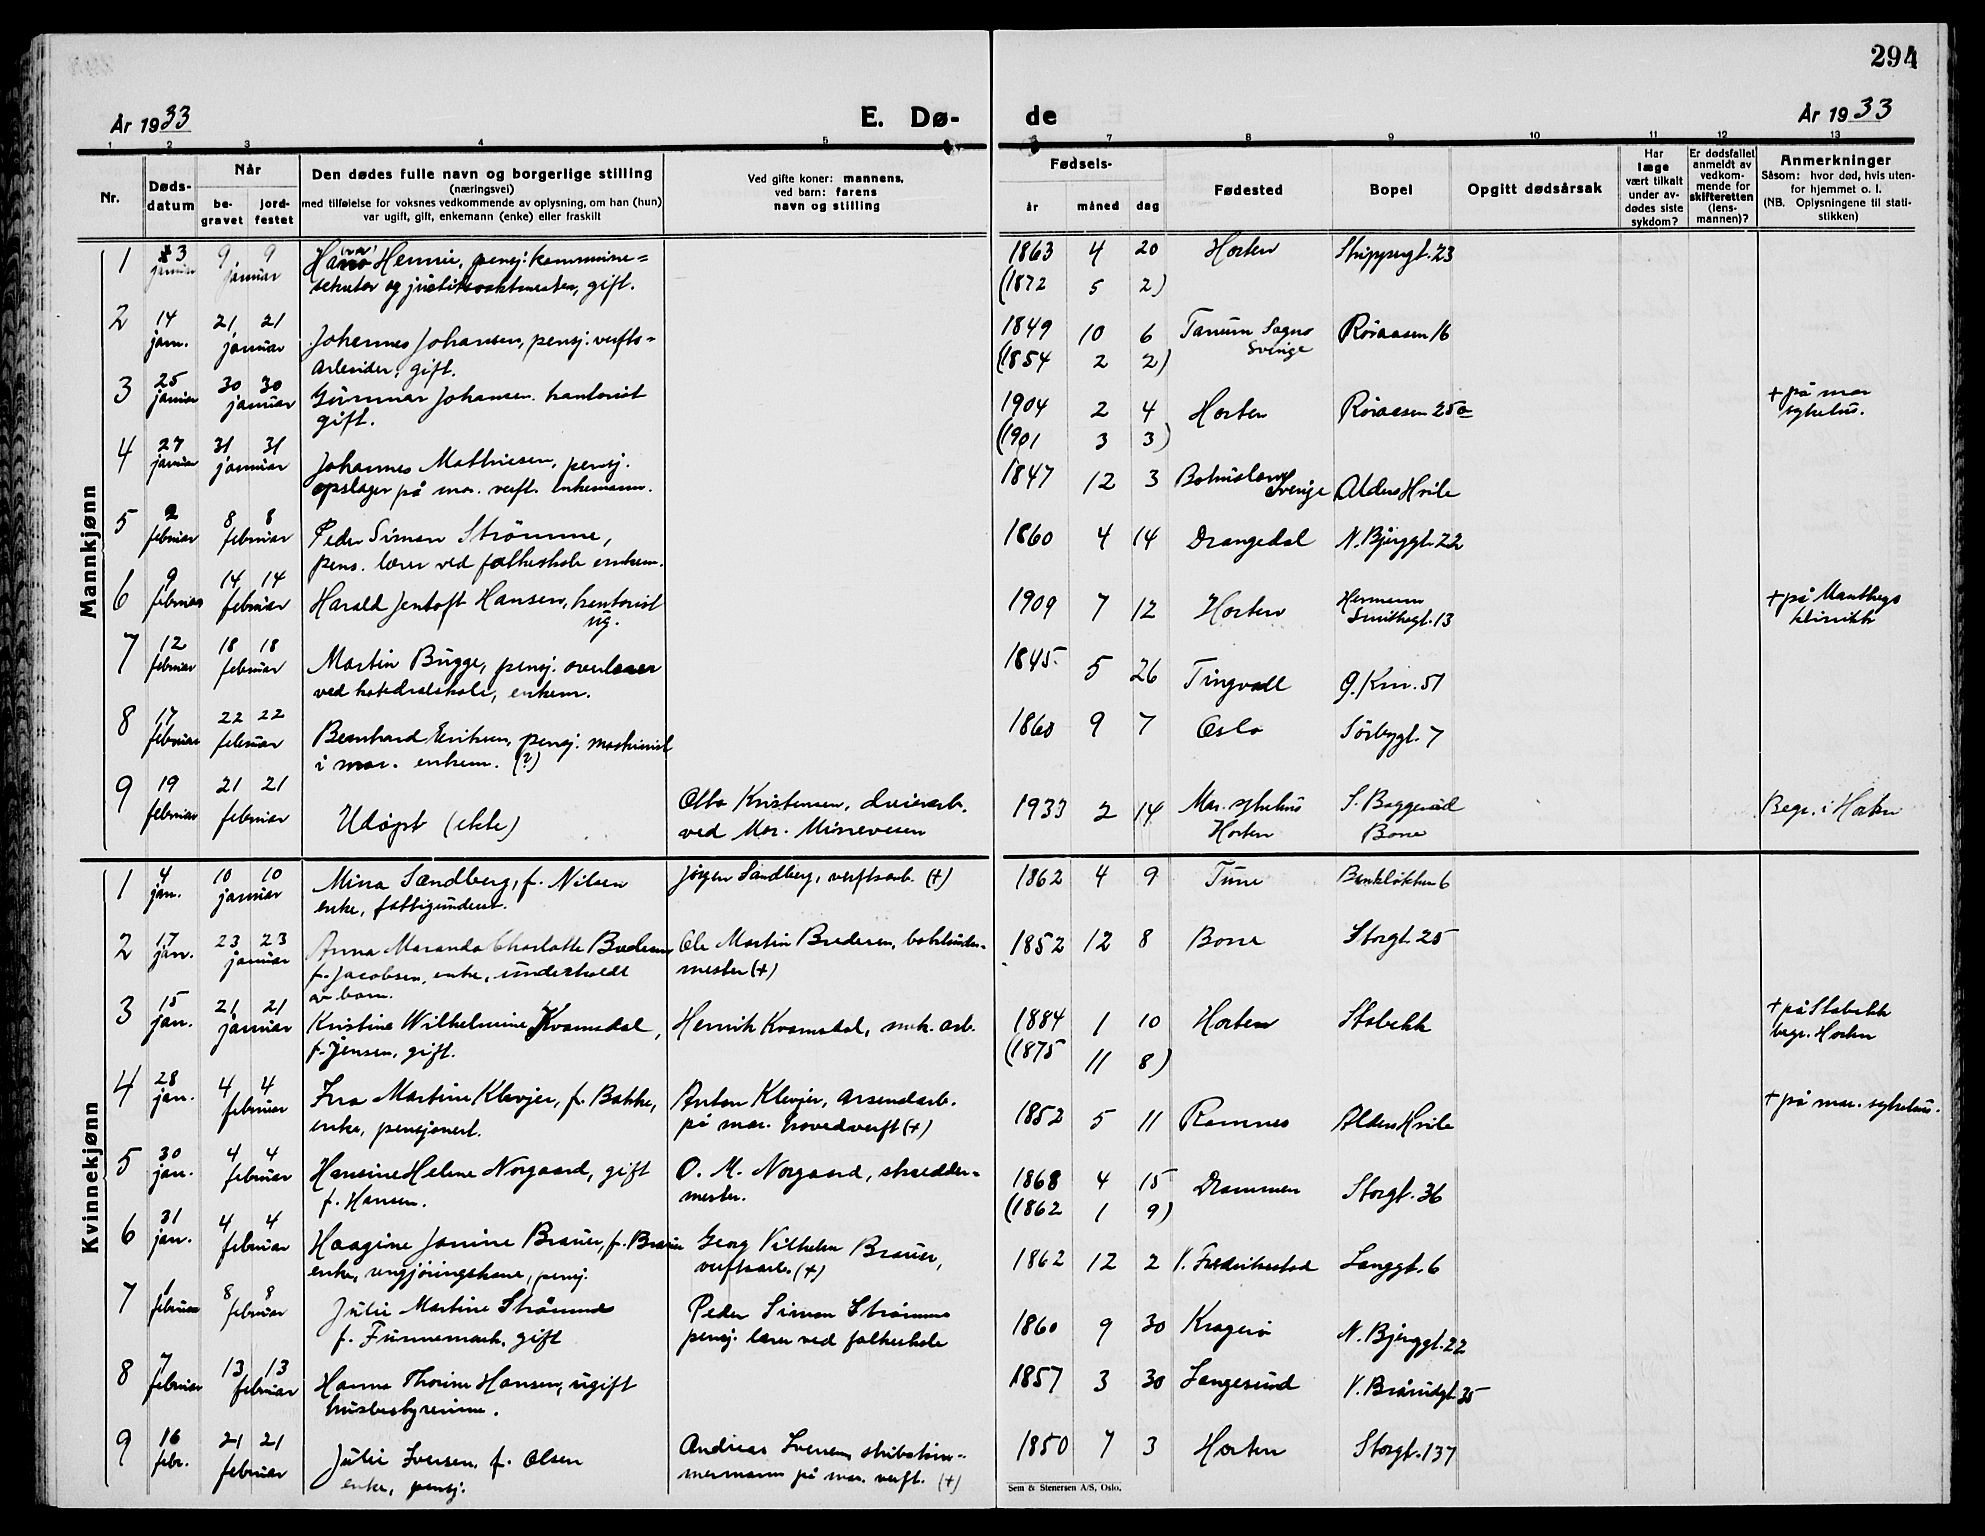 294
År 1933
E. Dø-
de
År 1933
1 2 3 4 5 6 7 8 9 10 11 12 13
Nr.
Døds-
datum
Når
be-
gravet
jord-
festet
Den dødes fulle navn og borgerlige stilling
(næringsvei)
med tilføielse for voksnes vedkommende av oplysning, om han (hun)
var ugift, gift, enkemann (enke) eller fraskilt
Ved gifte koner: mannens,
ved barn: farens
navn og stilling
Fødsels-
år
måned
dag
Fødested
Bopel
Opgitt dødsårsak
Har
læge
vært tilkalt
under av-
dødes siste
sykdom?
Er dødsfallet
anmeldt av
vedkom-
mende for
skifteretten
(lens-
mannen)?
Anmerkninger
Såsom: hvor død, hvis uten-
for hjemmet o. l.
(NB. Oplysningene til stati-
stikken)
Mannkjønn
1 3 9 9 Hennie, pensj. kommune= 1863 4 20 Horten 23
januar januar og gift. (1872 5 2)
2 14 21 21 Johannes Johansen, pensj. verfts= 1849 10 6 Tanum Sogn Røraasen 16
jan. januar arbeider, gift. (1854 2 2) Sverige
3 25 30 30 Gunnar Johansen. kontorist 1904 2 4 Horten Røraasen 25a + på mar
januar januar gift. (1901 3 3) sykehus.
4 27 31 31 Johannes Mathiesen, pensj. 1847 12 3 Bohuslen Alders Hvile
januar januar opslager på mar. verft. enkemann. Sverige
5 2 8 8 Peder Simon Strømme, 1860 4 14 Drangedal N. Bjerggt. 22
februar februar pens. lærer ved folkeskole enkem.
6 9 14 14 Harald Jentoft Hansen, kontorist 1909 7 12 Horten Hermann + på
februar februar ug. Smithsgt. 13 klinikk
7 12 18 18 Martin Bugge, pensj. overlærer 1845 5 26 Tingvoll G. Km. 51
februar februar ved katedralskole, enkem.
8 17 22 22 Bernhard Eriksen, pensj. maskinist 1860 9 7 Oslo Sørbygt. 7
februar februar i mar. enkem. (?)
9 19 21 21 Udøpt (ekte) Otto Kristensen, 1933 2 14 Mar. sykehus S. Baggerød Begr. i Horten
februar februar ved Mar. Minevesen Horten Borre
Kvinnekjønn
1 4 10 10 Mina Sandberg, f. Nilsen Jørgen Sandberg, verftsarb. (+) 1862 4 9 Tune Bankløkken 6
jan. januar enke, fattigunderst.
2 17 23 23 Anna Maranda Charlotte Bredesen Ole Martin Bredesen, 1852 12 8 Borre Storgt. 25
jan. januar f. Jacobsen, enke, underholdt mester (+)
av barn.
3 15 21 21 Kristine Wilhelmine Kvamsdal, Henrik Kvamsdal, mek. arb. 1884 1 10 Horten Stabekk + på Stabekk
jan. januar f. Jensen, gift. (1875 11 8) begr. Horten
4 28 4 4 Martine Klevjer, f. Bakke, Anton Klevjer, arsenalarb. 1852 5 11 Ramnes Alders Hvile + på mar. sykehus.
jan. februar enke, pensjonert. på mar. hovedverft (+)
5 30 4 4 Hansine Helene Norgaard, gift O. M. Norgaard, skredder= 1868 4 15 Drammen Storgt. 36
jan. februar f. Hansen. mester. (1862 1 9)
6 31 4 4 Haagine Janine Brauer, f. Georg Vilhelm Brauer, 1862 12 2 V. Fredrikstad Langgt. 6
jan. februar enke, rengjøringskone, pensj. verftsarb. (+)
7 1 8 8 Julie Martine Strømme Peder Simon Strømme 1860 9 30 Kragerø N. Bjerggt. 22
februar februar f. Funnemark, gift pensj. lærer ved folkeskole
8 7 13 13 Hanna Thorine Hansen, ugift 1857 3 30 Langesund V. Braarudgt. 35
februar februar husbestyrerinne.
9 16 21 21 Julie Iversen, f. Olsen Andreas Iversen, skibstøm= 1850 7 3 Horten Storgt. 137
febr. februar enke, pensj. mermann på mar. verft. (+)
Sem & Stenersen A/S, Oslo.